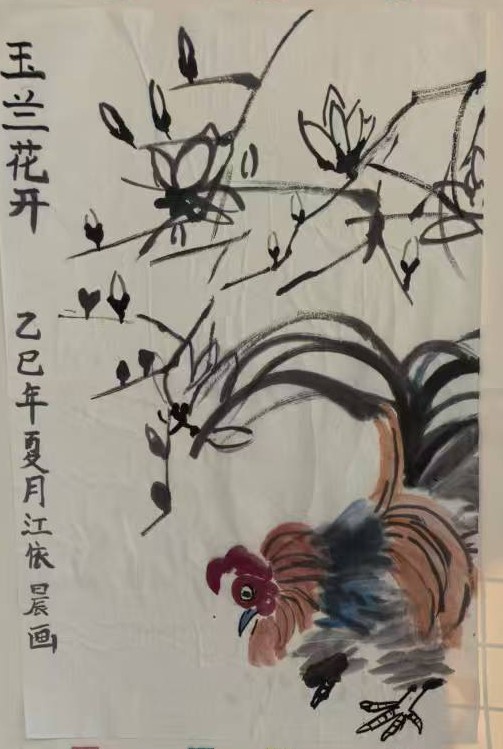 玉兰花开
乙巳年夏月江依晨画